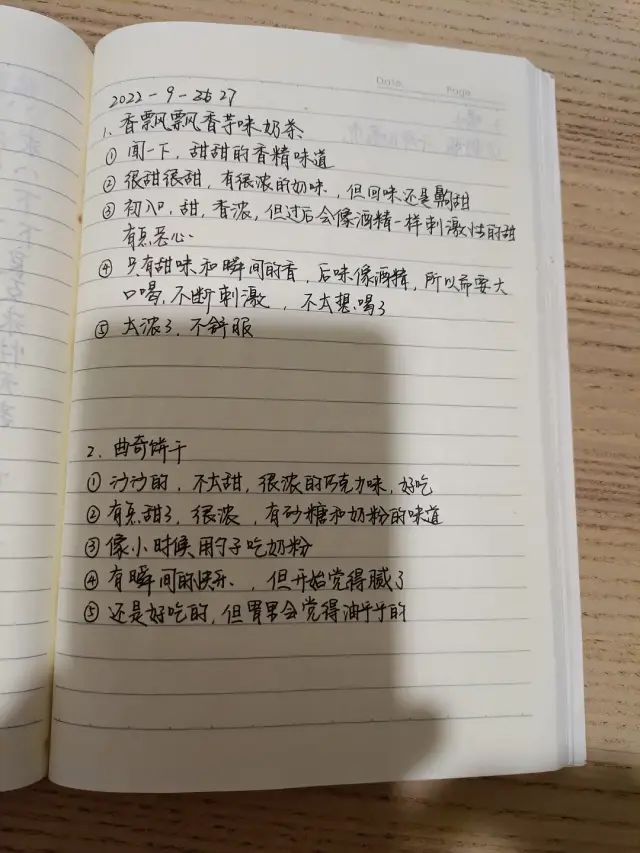 Date. Page.
2022-9-26 27
1、香飘飘香芋味奶茶
① 闻一下，甜甜的香精味道
② 很甜很甜，有很浓的奶味，但回味还是齁甜
③ 初入口，甜，香浓，但过后会像酒精一样刺激性的甜
有点恶心.
④ 只有甜味和瞬间的香，后味像酒精，所以需要大
口喝，不断刺激，不太想喝了
⑤ 太浓了，不舒服
2、曲奇饼干
① 沙沙的，不太甜，很浓的巧克力味，好吃
② 有点甜了，很浓，有砂糖和奶粉的味道
③ 像小时候用勺子吃奶粉
④ 有瞬间的快乐，但开始觉得腻了
⑤ 还是好吃的，但胃里会觉得油乎乎的